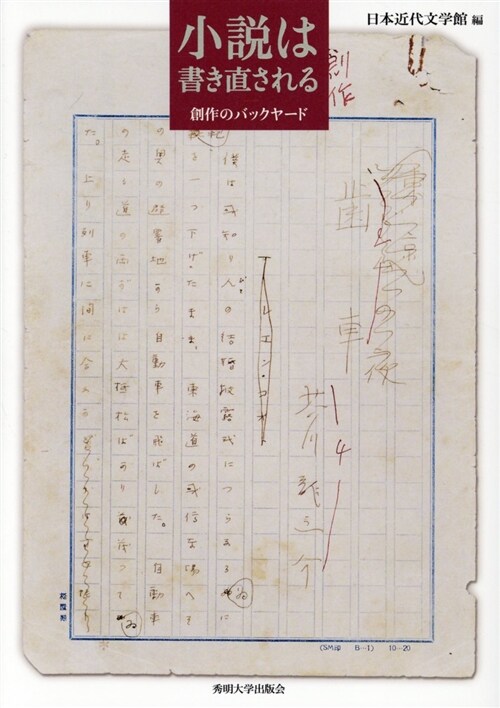 日本近代文学館 編
小説は
書き直される
創作のバックヤード
創作
夜
歯車
芥川龍之介
レエン・コオト
僕は或知り人の結婚披露式につらなる
一つ下げたまま、東海道の或停車場へそ
の奥の避暑地から自動車を飛ばした。自動車
の走る道の両がはは大抵松ばかり茂つてゐ
た。上り列車に間に合ふ
(SM印 B—1) 10—20
秀明大学出版会